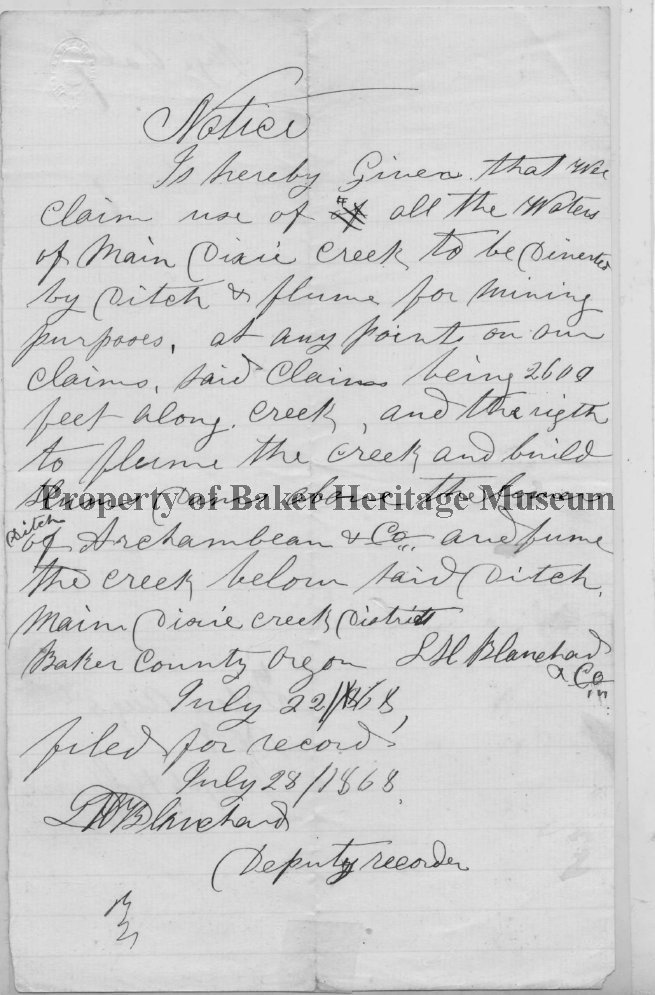 Notice
Is hereby Given that We
claim use of all the Waters
of Main Dixie Creek to be Diverted
by Ditch & flume for mining
purposes, at any points on our
claims, said Claims being 2600
feet along creek, and the rigth
to flume the creek and build
Dams above the
Property of Baker Heritage Museum
Ditch
of Archambeau & Co and fume
the creek below said Ditch,
Main Dixie creek District
Baker County Oregon L H Blanchard
& Co
July 22/1868,
filed for record
July 28/1868
L H Blanchard
Deputy recorder